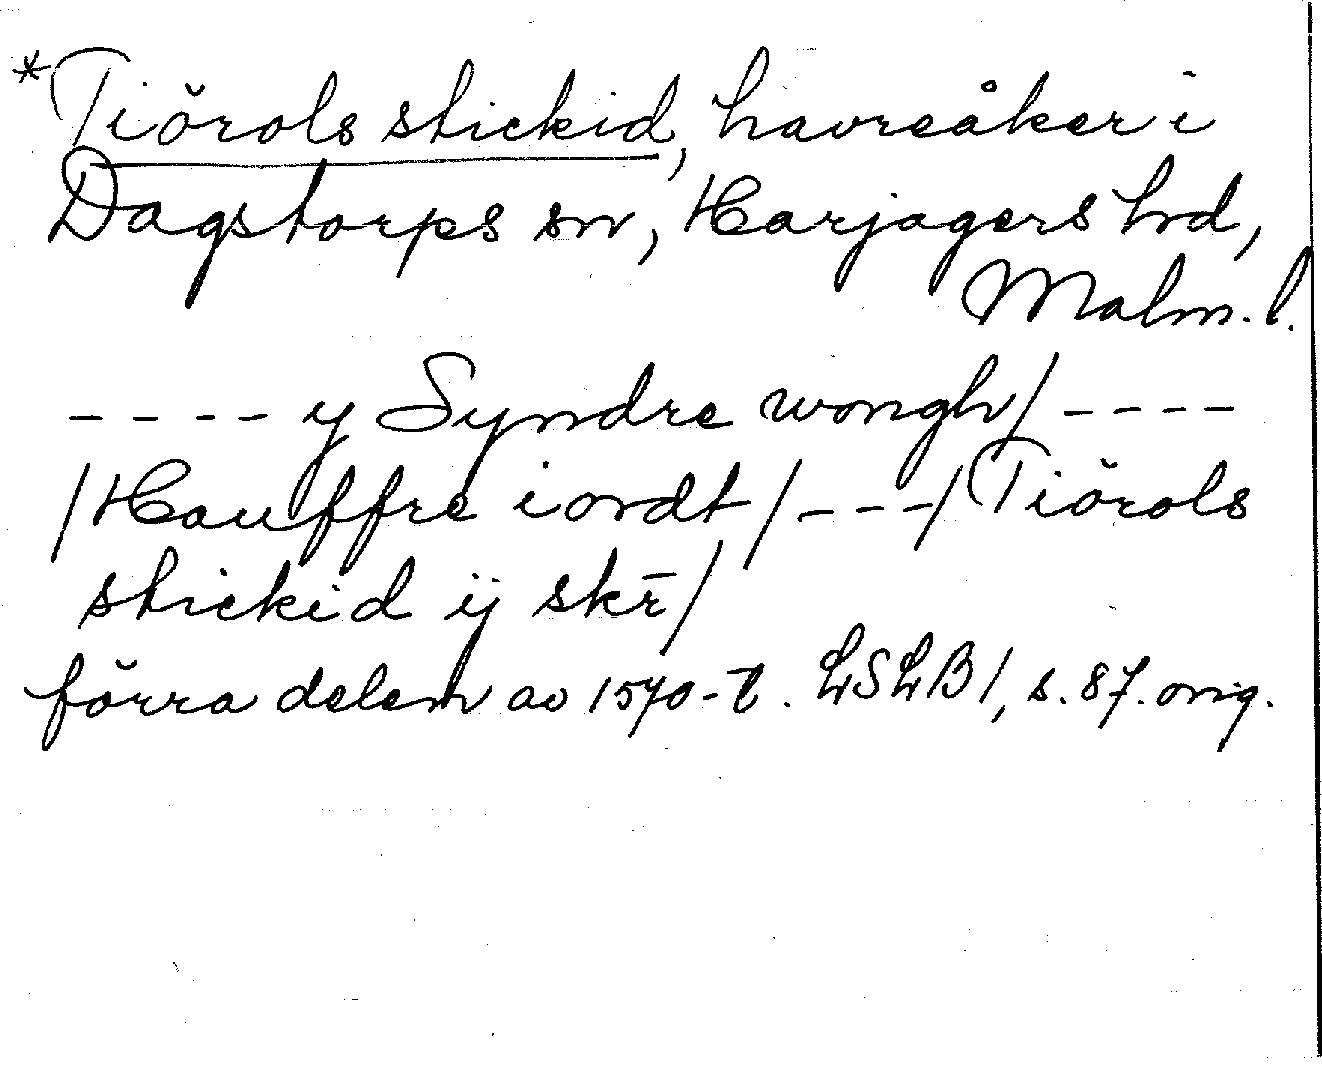 *Tiörols stickid, havreåker i
Dagstorps sn, Harjagers hd,
Malm. l.
---- y Syndre wongh/ ----
/Hauffre iordt/ ---/ Tiörols
stickid ij skr̄/
förra delen av 1570-t. LSLB 1, s. 87. orig.